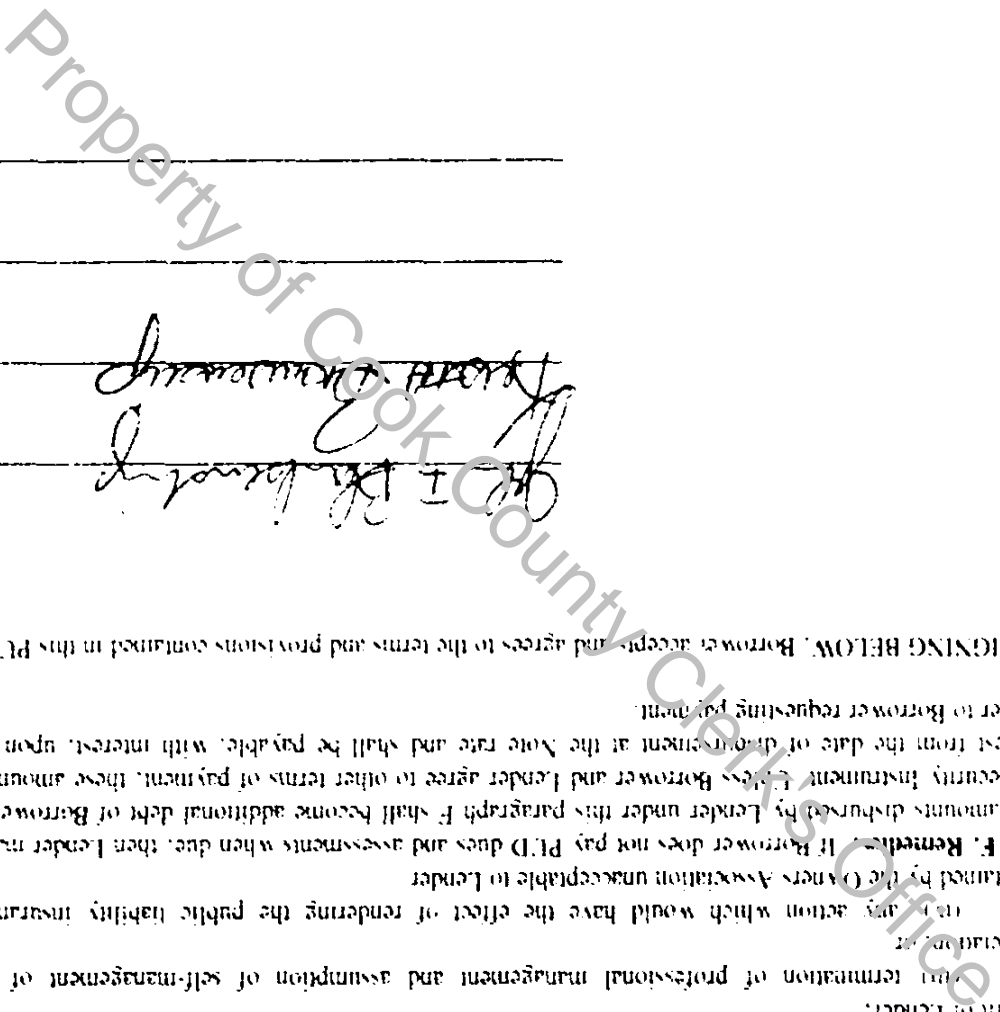 nt of Lender;
(iii) termination of professional management and assumption of self-management of
ciation; or
(iv) any action which would have the effect of rendering the public liability insuran
tained by the Owners Association unacceptable to Lender
F. Remedies. If Borrower does not pay PUD dues and assessments when due, then Lender ma
amounts disbursed by Lender under this paragraph F shall become additional debt of Borrowe
ecurity Instrument. Unless Borrower and Lender agree to other terms of payment, these amoun
est from the date of disbursement at the Note rate and shall be payable, with interest, upon
er to Borrower requesting payment.
IGNING BELOW, Borrower accepts and agrees to the terms and provisions contained in this PU
Property of Cook County Clerk's Office